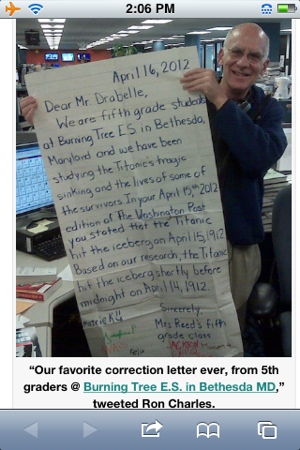 2:06 PM
April 16, 2012
Dear Mr. Drabelle,
We are fifth grade students
at Burning Tree E.S. in Bethesda,
Maryland and we have been
studying the Titanic's tragic
sinking and the lives of some of
the survivors. In your April 15th 2012
edition of The Washington Post
you stated that the Titanic
hit the iceberg on April 15, 1912.
Based on our research, the Titanic
hit the iceberg shortly before
midnight on April 14, 1912.
Sincerely,
Mrs. Reed's fifth
grade class
“Our favorite correction letter ever, from 5th
graders @ Burning Tree E.S. in Bethesda MD,”
tweeted Ron Charles.